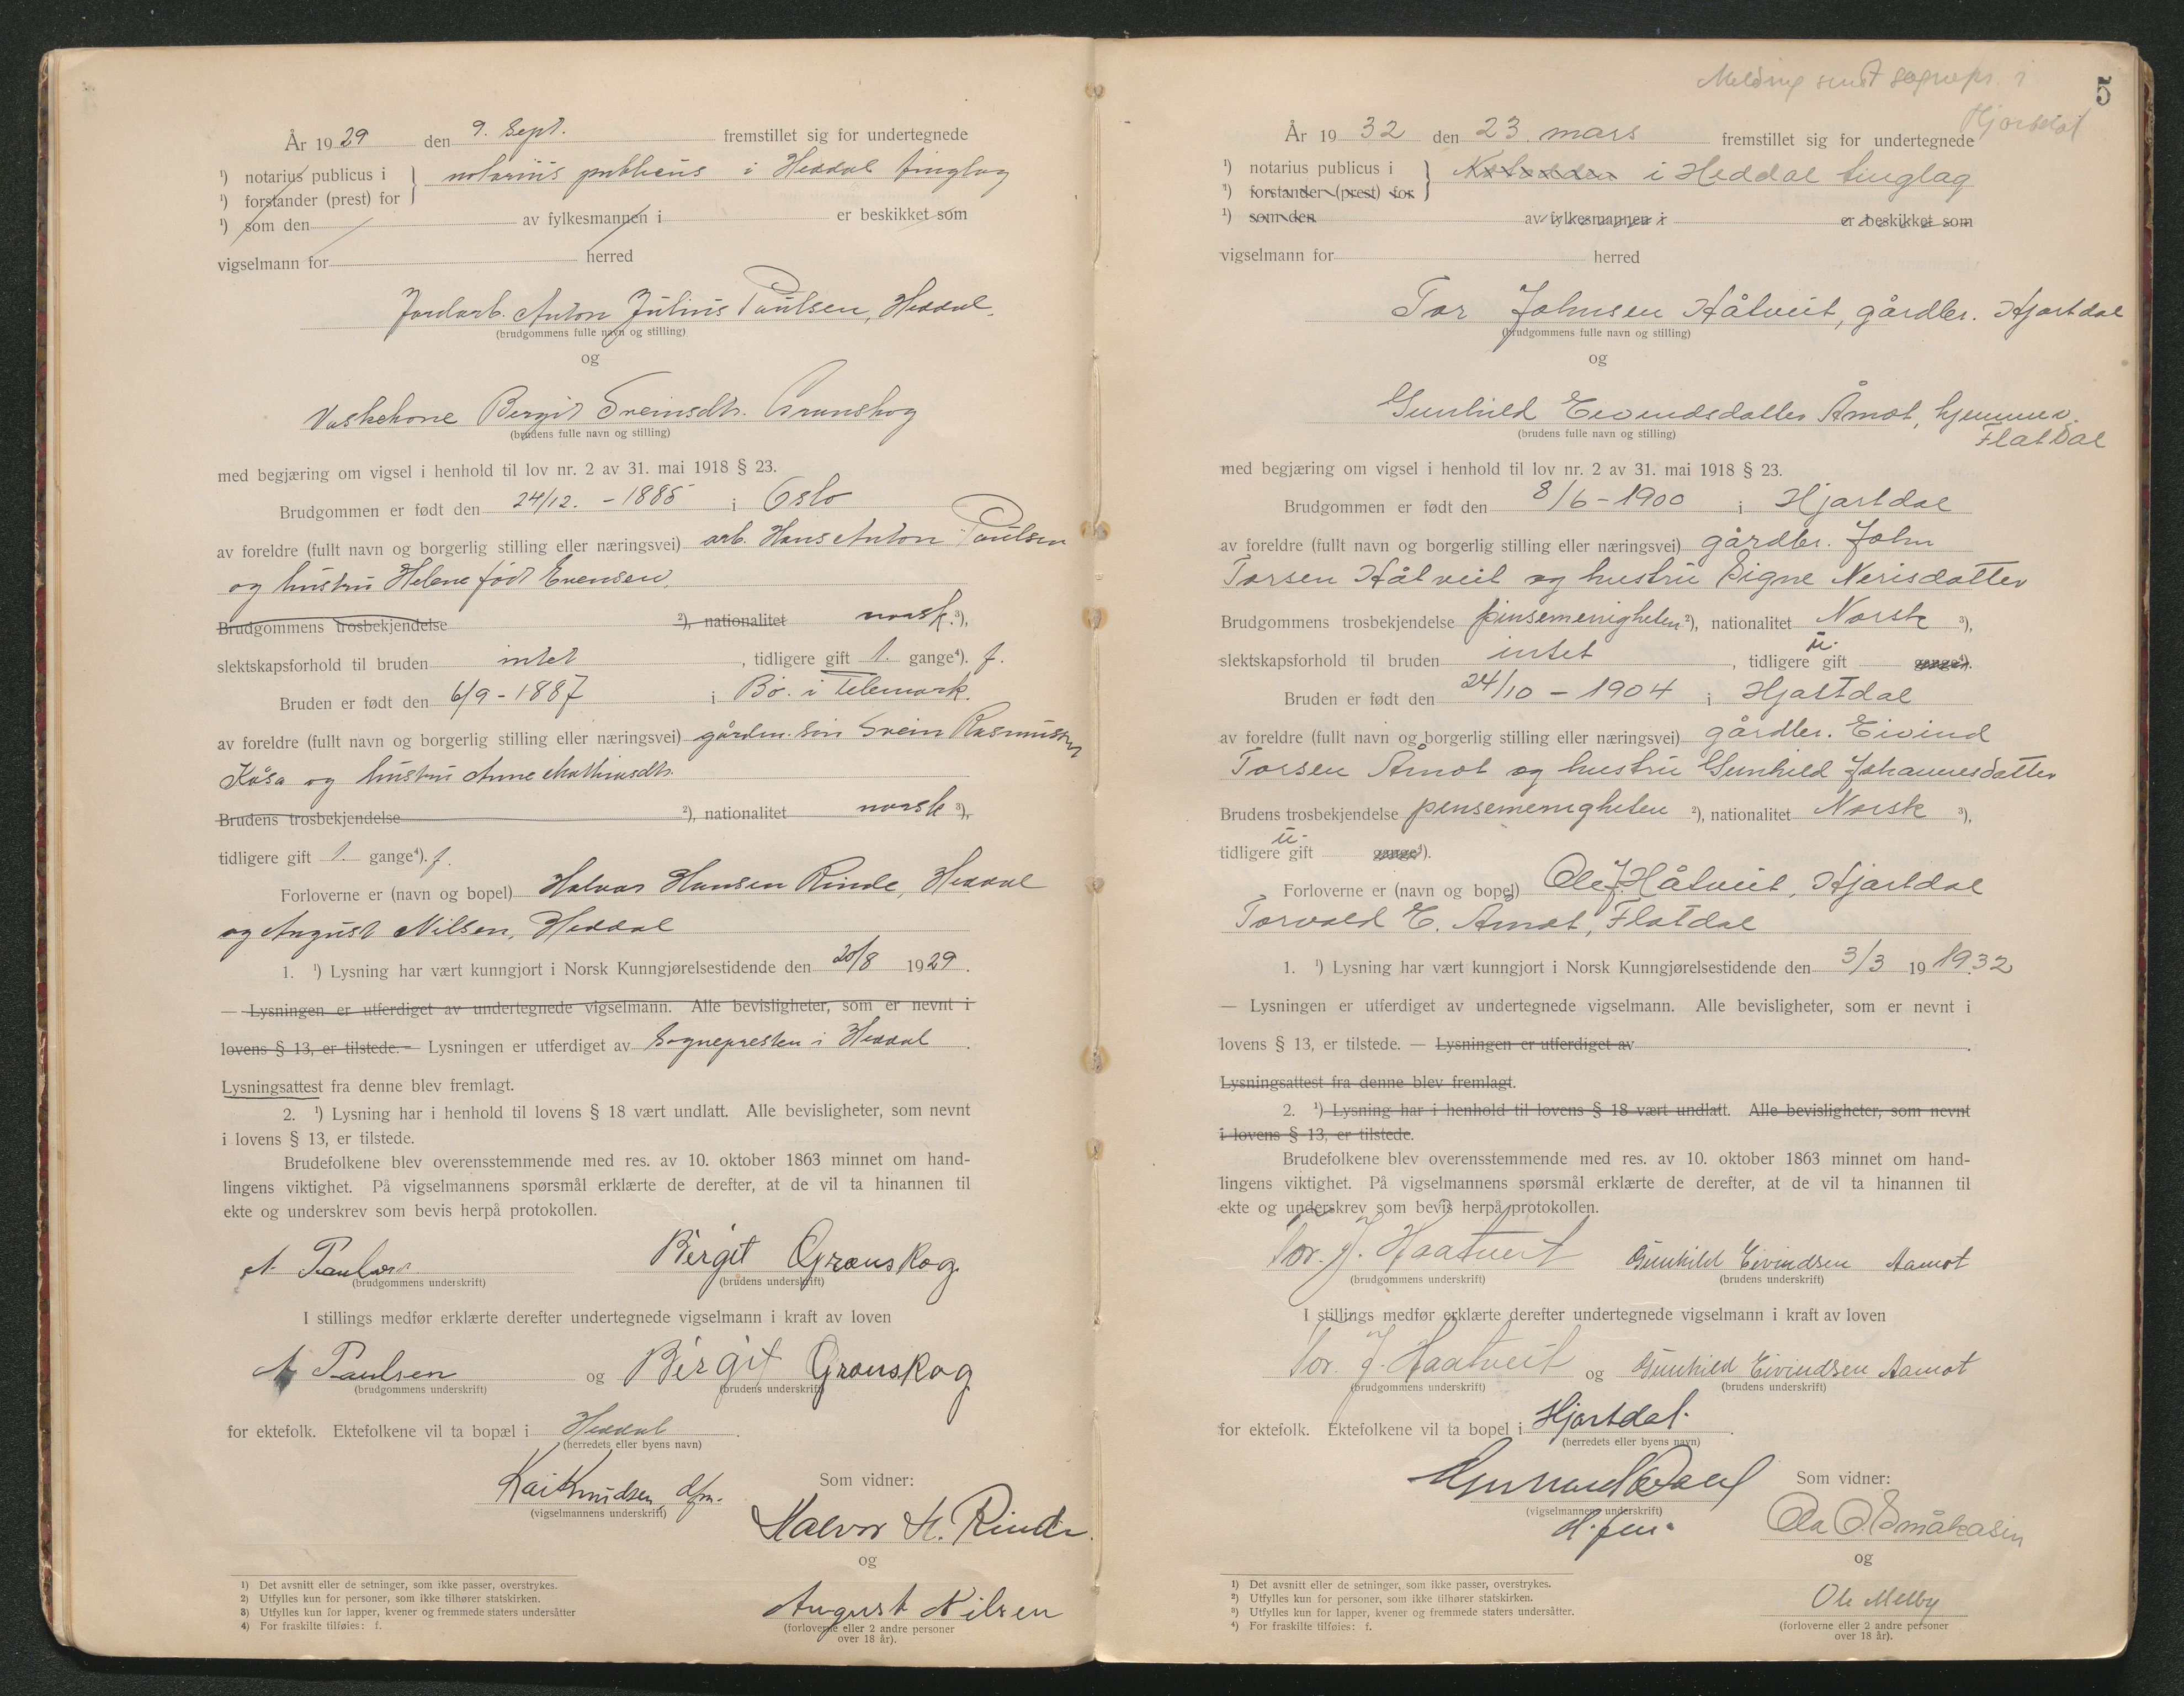 År 1929 den 9. Sept. fremstillet sig for undertegnede
¹) notarius publicus i } notarius publicus i Heddal tinglag
¹) forstander (prest) for
¹) som den av fylkesmannen i er beskikket som
vigselmann for herred
Jordarb. Anton Julius Paulsen, Heddal.
(brudgommens fulle navn og stilling)
og
Vaskekone Bergit Sveinsdtr. Grønskog
(brudens fulle navn og stilling)
med begjæring om vigsel i henhold til lov nr. 2 av 31. mai 1918 § 23.
Brudgommen er født den 24/12. - 1885 i Oslo
av foreldre (fullt navn og borgerlig stilling eller næringsvei) arb. Hans Anton Paulsen
og hustru Helene født Evensen.
Brudgommens trosbekjendelse ²), nationalitet norsk. ³),
slektskapsforhold til bruden intet, tidligere gift 1. gange⁴). f.
Bruden er født den 6/9 - 1887 i Bø i Telemark.
av foreldre (fullt navn og borgerlig stilling eller næringsvei) Svein Rasmussen
Kåsa og hustru Anne Mathiasdtr.
Brudens trosbekjendelse ²), nationalitet norsk ³),
tidligere gift 1. gange⁴). f.
Forloverne er (navn og bopel) Halvor Hansen Rinde, Heddal
og August Nilsen, Heddal
1. ¹) Lysning har vært kunngjort i Norsk Kunngjørelsestidende den 20/8 1929.
— Lysningen er utferdiget av undertegnede vigselmann. Alle bevisligheter, som er nevnt i
lovens § 13, er tilstede. — Lysningen er utferdiget av Sognepresten i Heddal.
Lysningsattest fra denne blev fremlagt.
2. ¹) Lysning har i henhold til lovens § 18 vært undlatt. Alle bevisligheter, som nevnt
i lovens § 13, er tilstede.
Brudefolkene blev overensstemmende med res. av 10. oktober 1863 minnet om hand-
lingens viktighet. På vigselmannens spørsmål erklærte de derefter, at de vil ta hinannen til
ekte og underskrev som bevis herpå protokollen.
A Paulsen Birgit Grønskog
(brudgommens underskrift) (brudens underskrift)
I stillings medfør erklærte derefter undertegnede vigselmann i kraft av loven
A Paulsen og Birgit Grønskog
(brudgommens underskrift) (brudens underskrift)
for ektefolk. Ektefolkene vil ta bopæl i Heddal.
(herredets eller byens navn)
Kai Knudsen, dfm. Som vidner:
(vigselmannens underskrift)
Halvor H. Rinde.
og
August Nilsen
(forloverne eller 2 andre personer
over 18 år).
1) Det avsnitt eller de setninger, som ikke passer, overstrykes.
2) Utfylles kun for personer, som ikke tilhører statskirken.
3) Utfylles kun for lapper, kvener og fremmede staters undersåtter
4) For fraskilte tilføies: f.
Melding sendt sognepr. i
Hjartdal
5
År 1932 den 23. mars fremstillet sig for undertegnede
¹) notarius publicus i } i Heddal tinglag
¹) forstander (prest) for
¹) som den av fylkesmannen i er beskikket som
vigselmann for herred
Tor Johnsen Håtveit, gårdbr. Hjartdal
(brudgommens fulle navn og stilling)
og
Gunhild Eivindsdatter Åmot, hjemmev.
Flatdal
(brudens fulle navn og stilling)
med begjæring om vigsel i henhold til lov nr. 2 av 31. mai 1918 § 23.
Brudgommen er født den 8/6 - 1900 i Hjartdal
av foreldre (fullt navn og borgerlig stilling eller næringsvei) gårdbr. John
Torsen Håtveit og hustru Signe Nerisdatter
Brudgommens trosbekjendelse pinsemenigheten ²), nationalitet Norsk ³),
slektskapsforhold til bruden intet, tidligere u. gift gange⁴).
Bruden er født den 24/10 - 1904 i Hjartdal
av foreldre (fullt navn og borgerlig stilling eller næringsvei) gårdbr. Eivind
Torsen Åmot og hustru Gunhild Johannesdatter
Brudens trosbekjendelse pinsemenigheten ²), nationalitet Norsk ³),
tidligere u. gift gange⁴).
Forloverne er (navn og bopel) Ole J. Håtveit, Hjartdal
Torvald E. Åmot, Flatdal
1. ¹) Lysning har vært kunngjort i Norsk Kunngjørelsestidende den 3/3 19 1932
— Lysningen er utferdiget av undertegnede vigselmann. Alle bevisligheter, som er nevnt i
lovens § 13, er tilstede. — Lysningen er utferdiget av .
Lysningsattest fra denne blev fremlagt.
2. ¹) Lysning har i henhold til lovens § 18 vært undlatt. Alle bevisligheter, som nevnt
i lovens § 13, er tilstede.
Brudefolkene blev overensstemmende med res. av 10. oktober 1863 minnet om hand-
lingens viktighet. På vigselmannens spørsmål erklærte de derefter, at de vil ta hinannen til
ekte og underskrev som bevis herpå protokollen.
Tor. J. Haatveit Gunhild Eivindsen Aamot
(brudgommens underskrift) (brudens underskrift)
I stillings medfør erklærte derefter undertegnede vigselmann i kraft av loven
Tor. J. Haatveit og Gunhild Eivindsen Aamot
(brudgommens underskrift) (brudens underskrift)
for ektefolk. Ektefolkene vil ta bopel i Hjartdal.
(herredets eller byens navn)
Som vidner:
(vigselmannens underskrift)
Ola O. Småkasin
og
Ole Melby
(forloverne eller 2 andre personer
over 18 år).
1) Det avsnitt eller de setninger, som ikke passer, overstrykes.
2) Utfylles kun for personer, som ikke tilhører statskirken.
3) Utfylles kun for lapper, kvener og fremmede staters undersåtter.
4) For fraskilte tilføies: f.